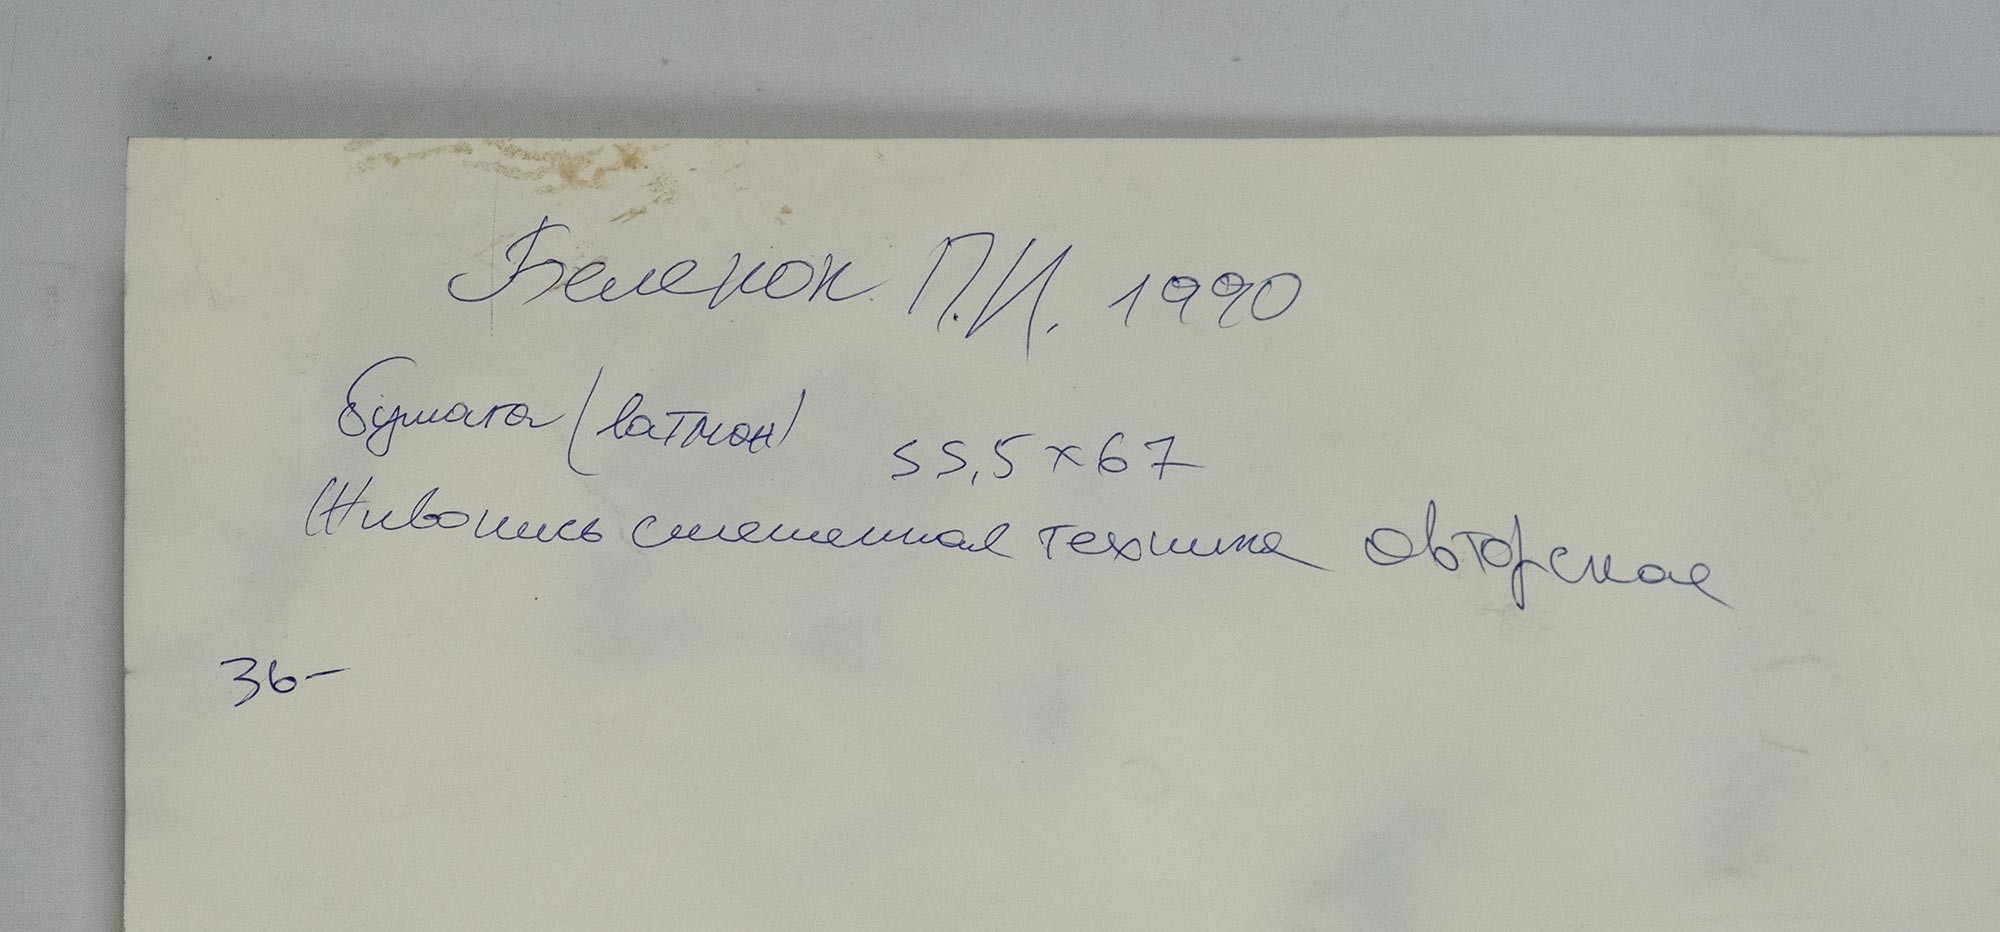 Беленок П.И. 1990
бумага (ватман)
55,5 х 67
Живопись смешенная техника авторская
36-